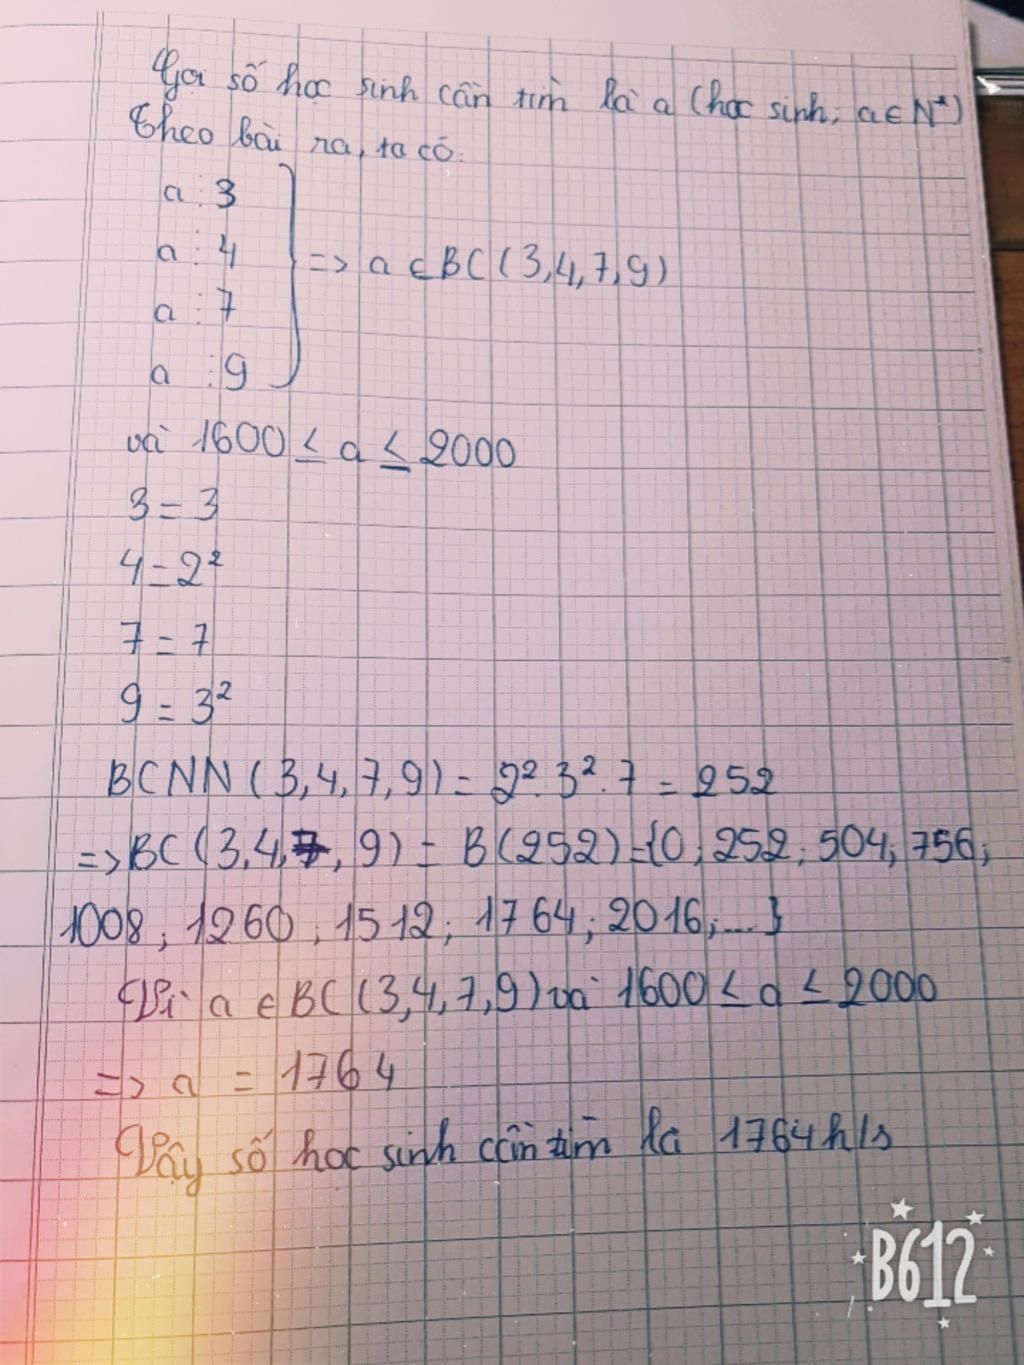 Gọi số học sinh cần tìm là a (học sinh; a ∈ N*)
Theo bài ra, ta có:
a ⋮ 3
a ⋮ 4
a ⋮ 7
a ⋮ 9
=> a ∈ BC (3,4,7,9)
và 1600 ≤ a ≤ 2000
3 = 3
4 = 2²
7 = 7
9 = 3²
BCNN (3,4,7,9) = 2². 3². 7 = 252
=> BC (3,4,7, 9) = B(252) = {0; 252; 504; 756;
1008; 1260; 1512; 1764; 2016;...}
Vì a ∈ BC (3,4,7,9) và 1600 ≤ a ≤ 2000
=> a = 1764
Vậy số học sinh cần tìm là 1764 h/s
B612